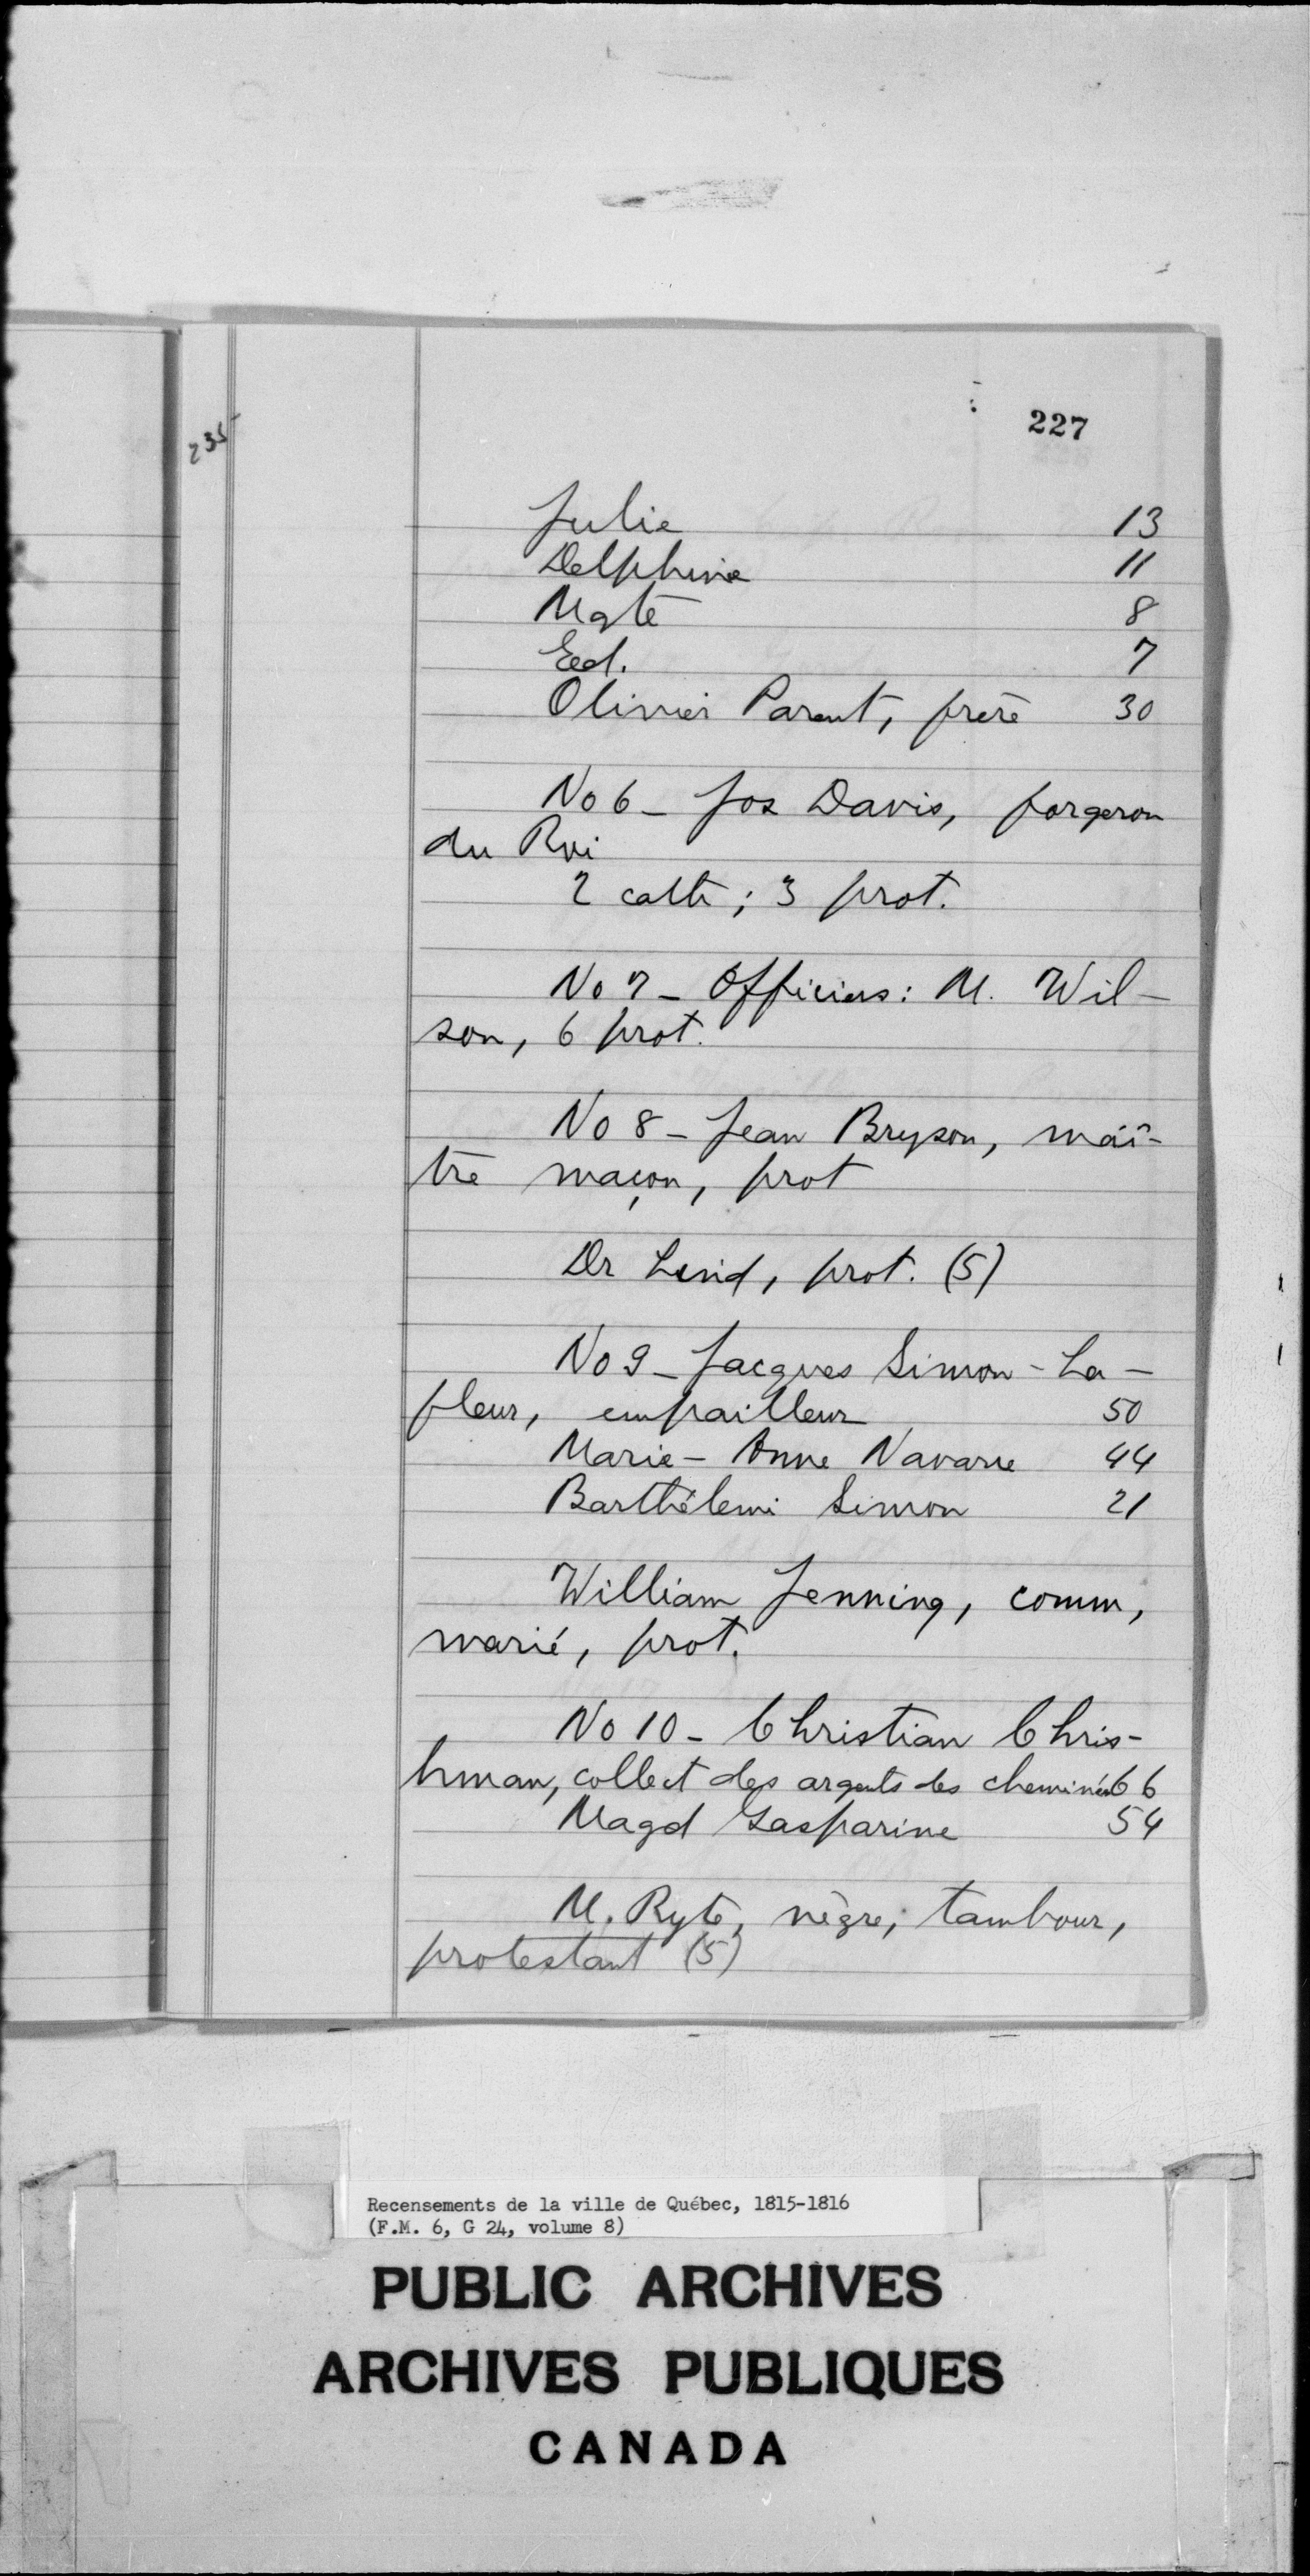 227
235
Julie 13
Delphine 11
Mgte 8
Ed. 7
Olivier Parent, frère 30
No 6 - Jos Davis, forgeron
du Roi
2 cath; 3 prot.
No 7 - Officiers: M. Wil-
son, 6 prot.
No 8 - Jean Bryson, maî-
tre maçon, prot
Dr Lind, prot. (5)
No 9 - Jacques Simon-La-
fleur, empailleur 50
Marie-Anne Navarre 44
Barthélemi Simon 21
William Jenning, comm,
marié, prot.
No 10 - Christian Chris-
hman, collect des argents des cheminées 66
Magd Gasparine 54
M. Ryte, nègre, tambour,
protestant (5)
Recensements de la ville de Québec, 1815-1816
(F.M. 6, G 24, volume 8)
PUBLIC ARCHIVES
ARCHIVES PUBLIQUES
CANADA